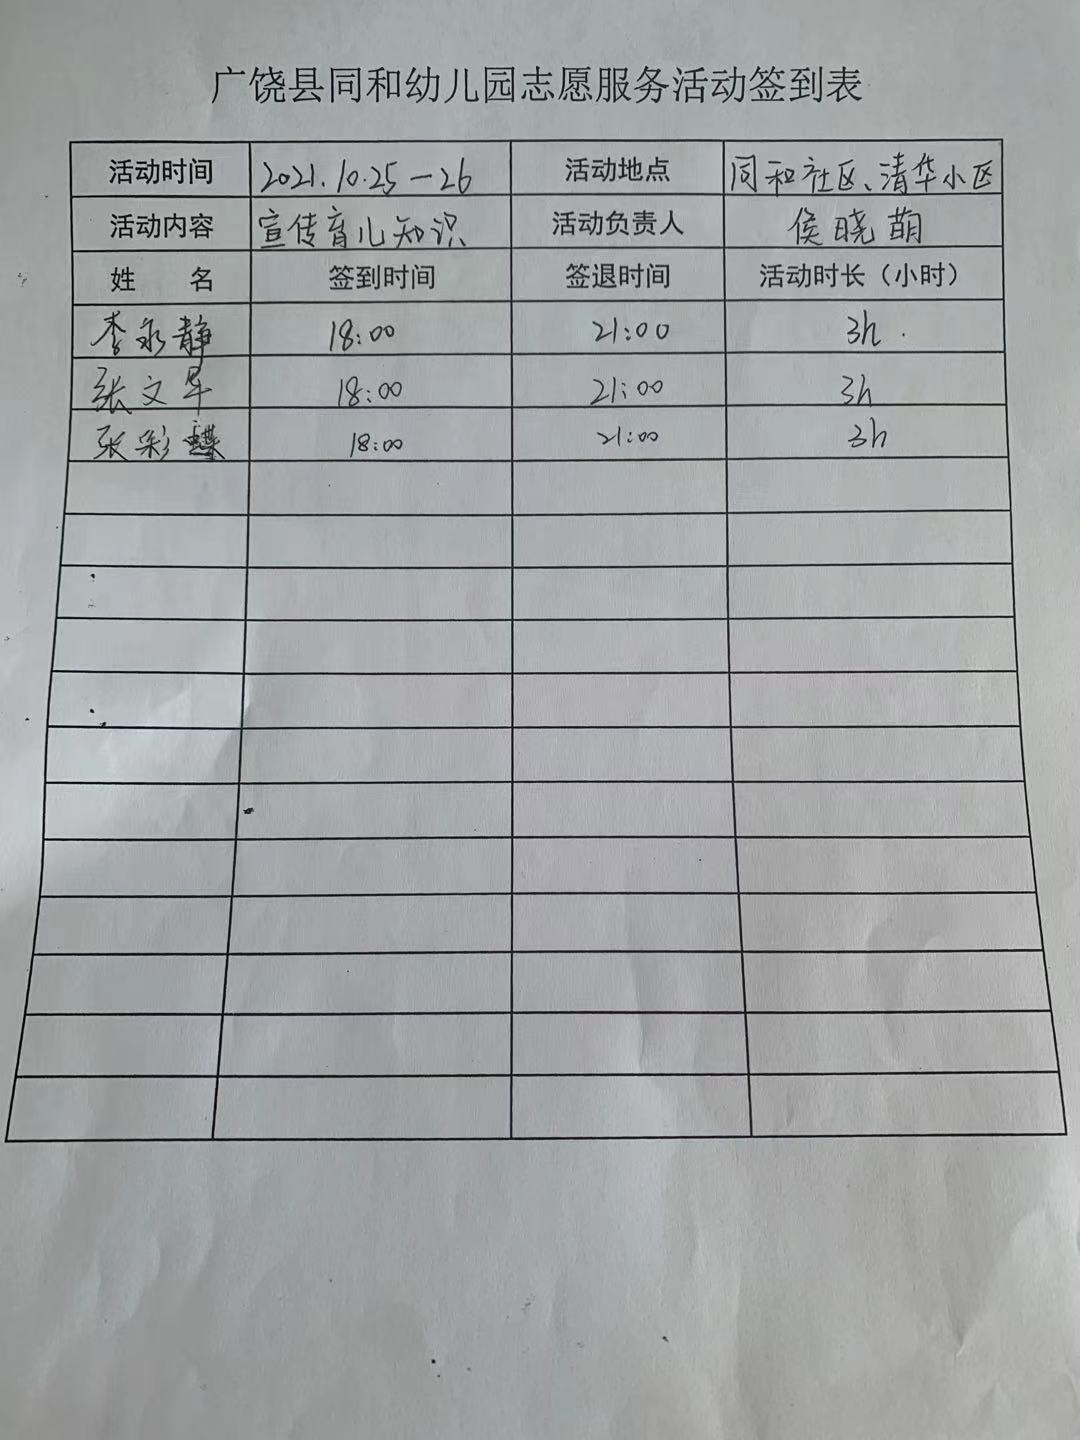 广饶县同和幼儿园志愿服务活动签到表
活动时间 2021.10.25－26 活动地点 同和社区、清华小区
活动内容 宣传育儿知识 活动负责人 侯晓萌
姓 名 签到时间 签退时间 活动时长（小时）
李永静 18:00 21:00 3h.
张文早 18:00 21:00 3h
张彩蝶 18:00 21:00 3h